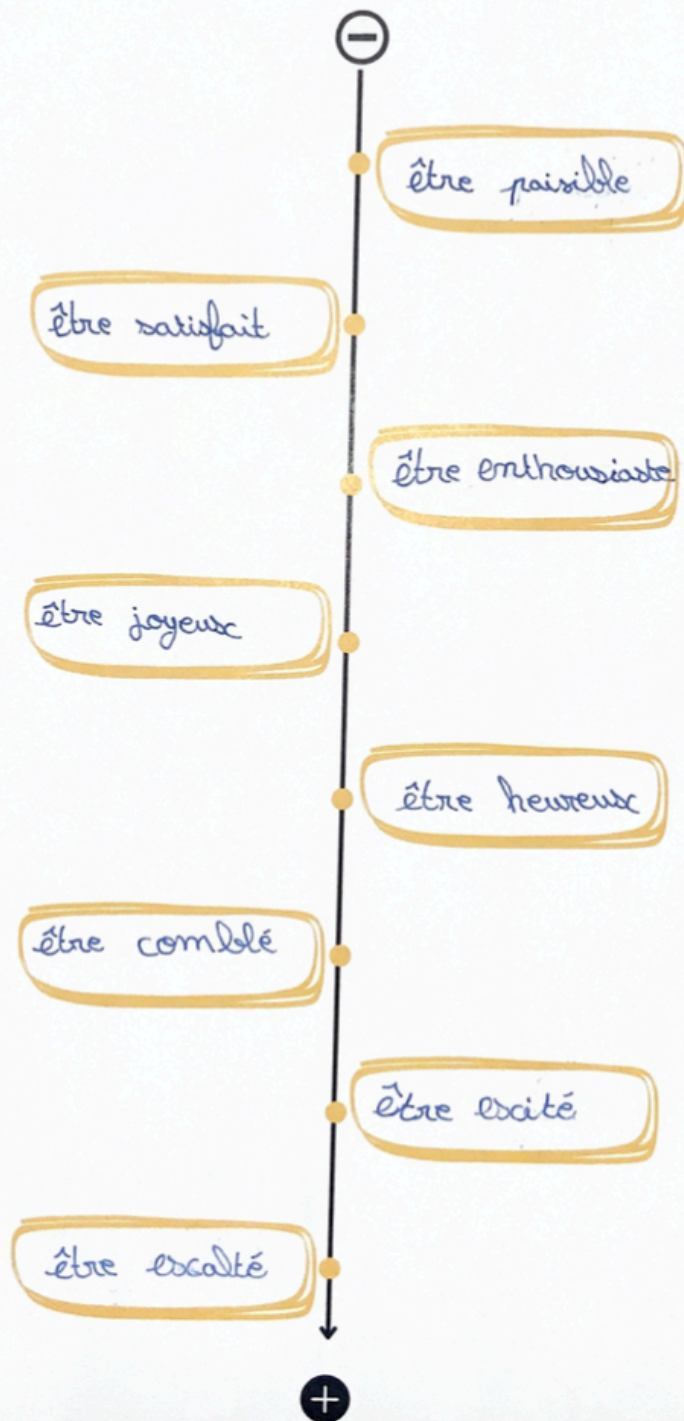 être paisible
être satisfait
être enthousiaste
être joyeux
être heureux
être comblé
être excité
être exalté